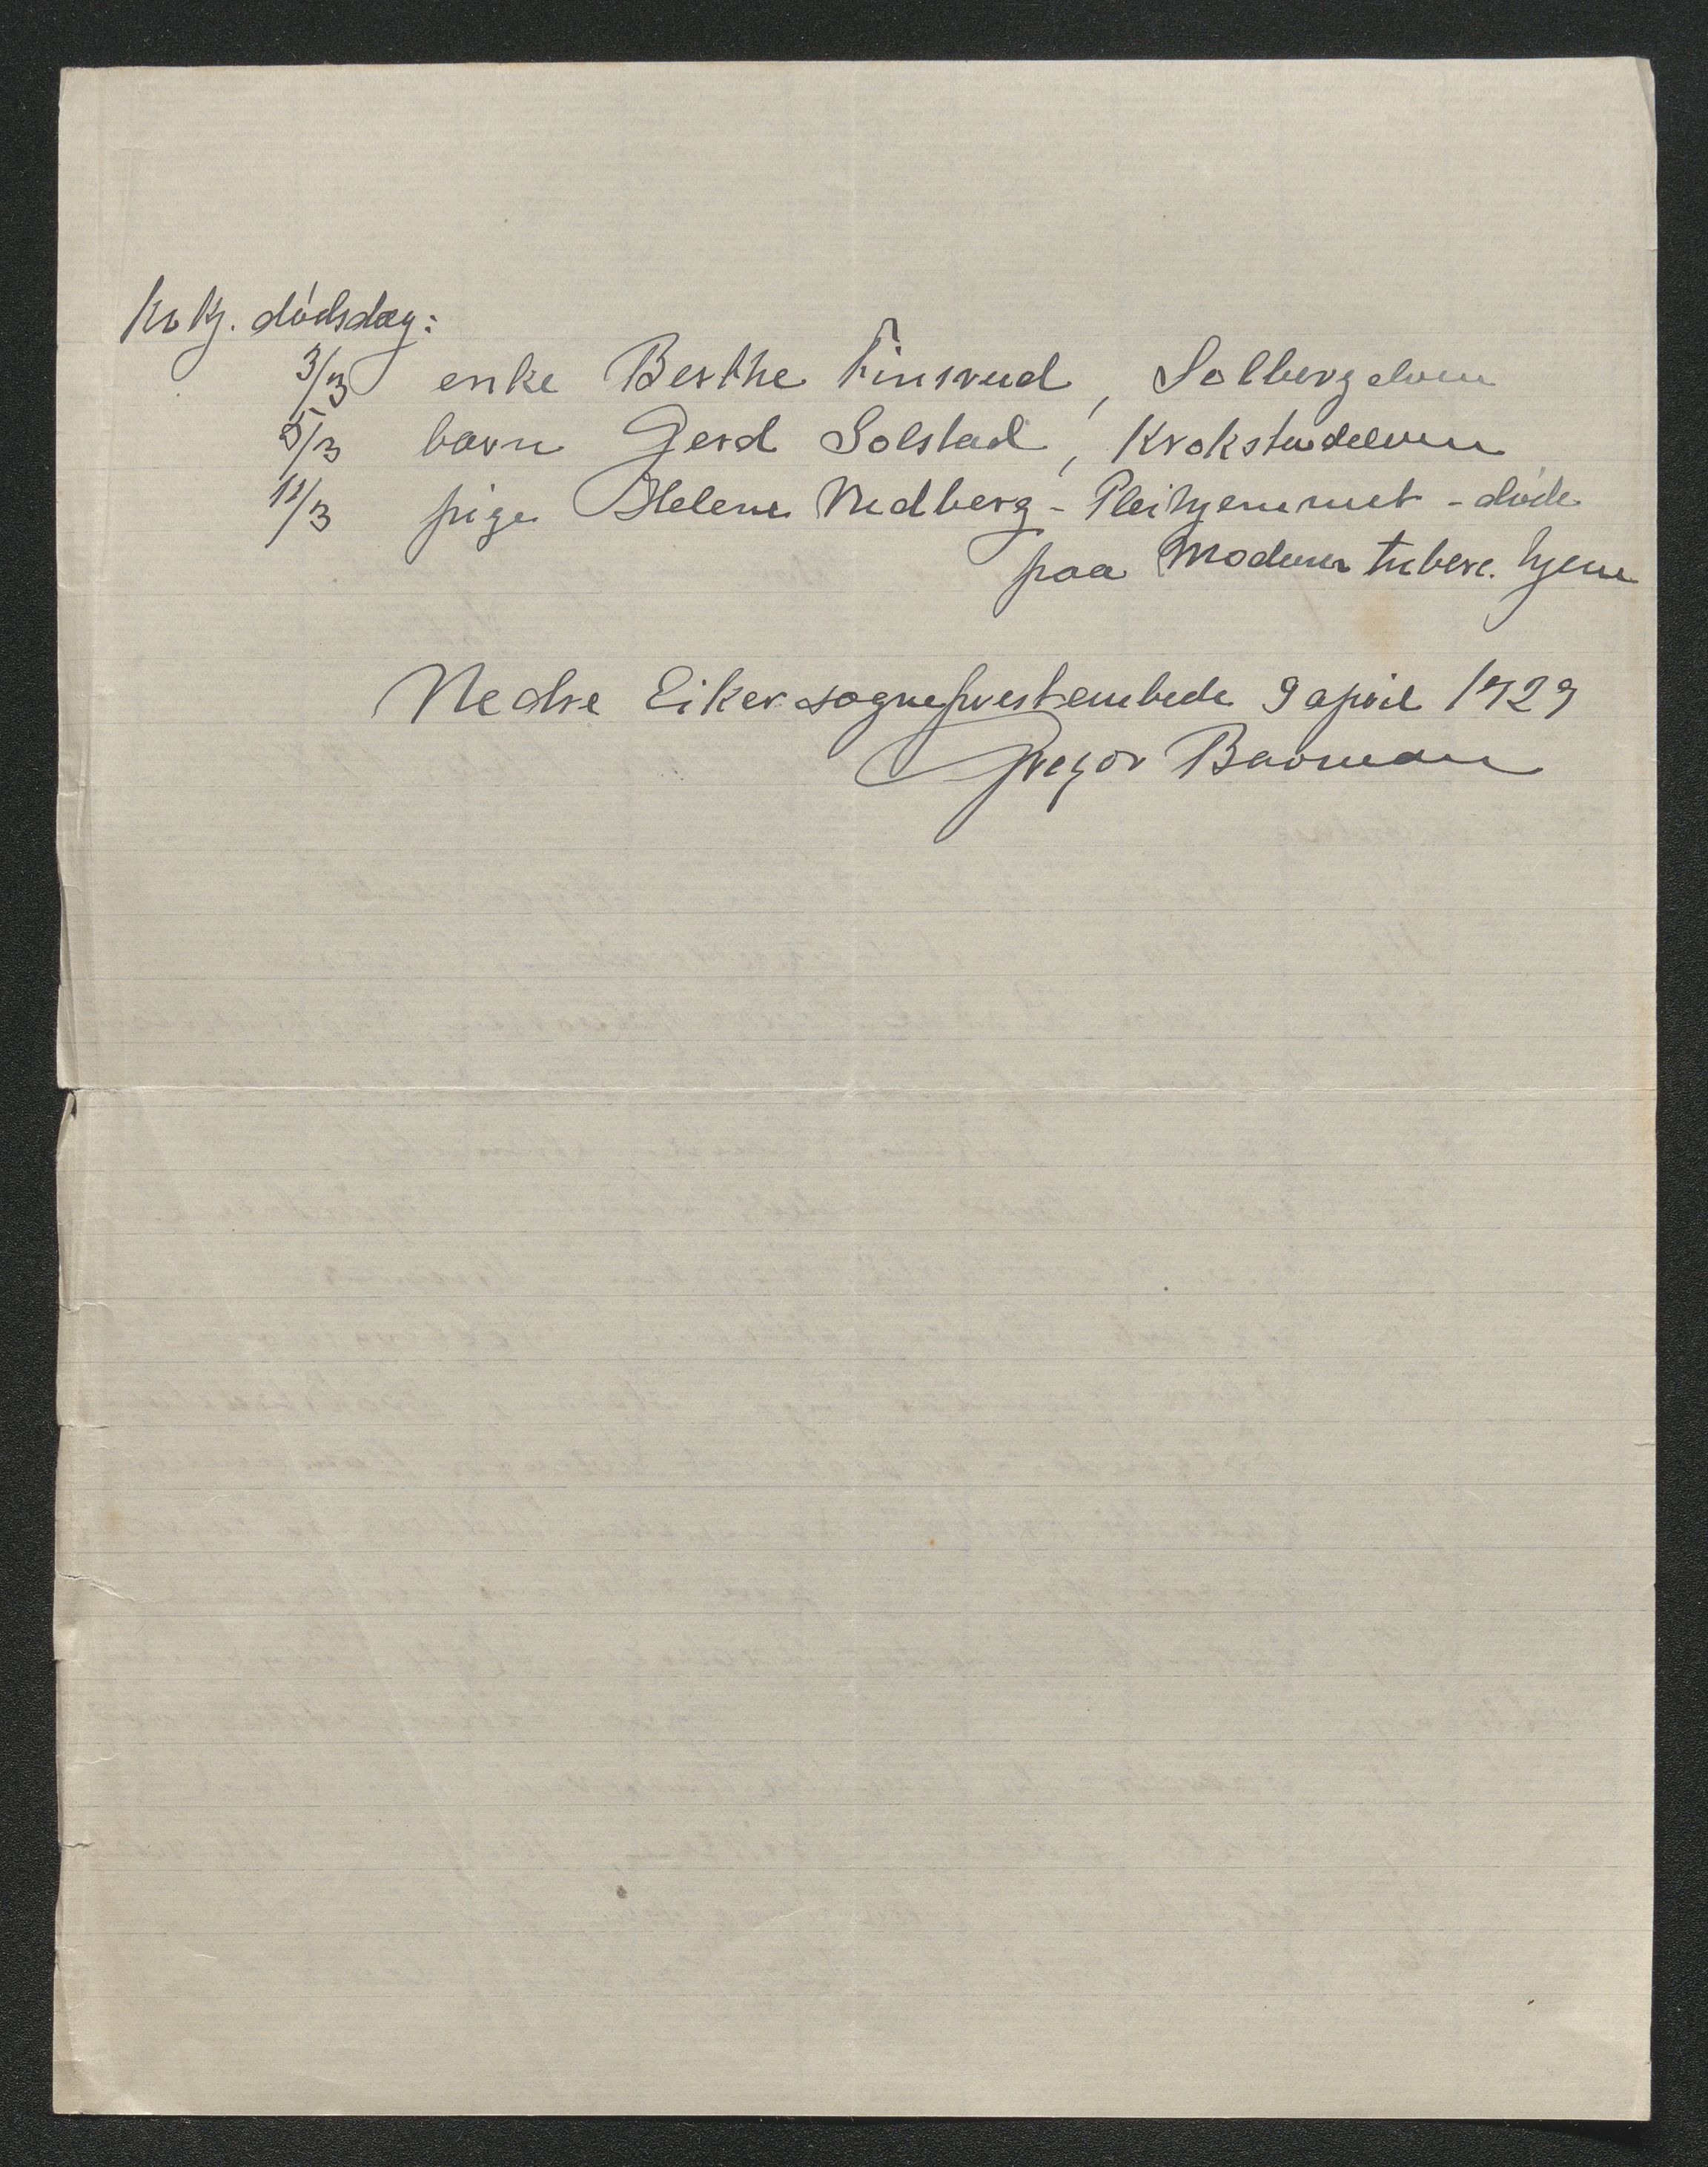 Kv kj. dødsdag:
3/3 enke Berthe Finsrud, Solbergelven
5/3 barn Gerd Solstad, Krokstadelven
12/3 pige Helene Nedberg - Pleihjemmet - døde
paa Modums tuberc. hjem
Nedre Eiker sogneprestembede 9 april 1929
Gregor Barman